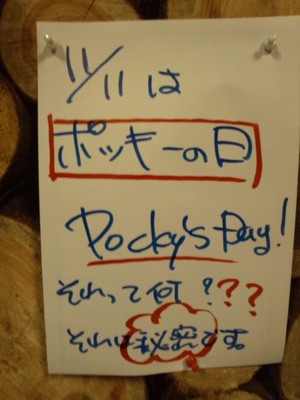 11/11は
ポッキーの日
Pocky's Day!
それって何???
それは秘密です。